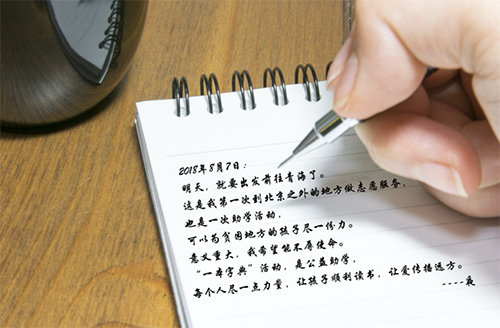 2018年8月7日：
明天，就要出发前往青海了。
这是我第一次到北京之外的地方做志愿服务，
也是一次助学活动，
可以为贫困地方的孩子尽一份力。
意义重大，我希望能不辱使命。
“一本字典”活动，是公益助学，
每个人尽一点力量，让孩子顺利读书，让爱传播远方。
----夜